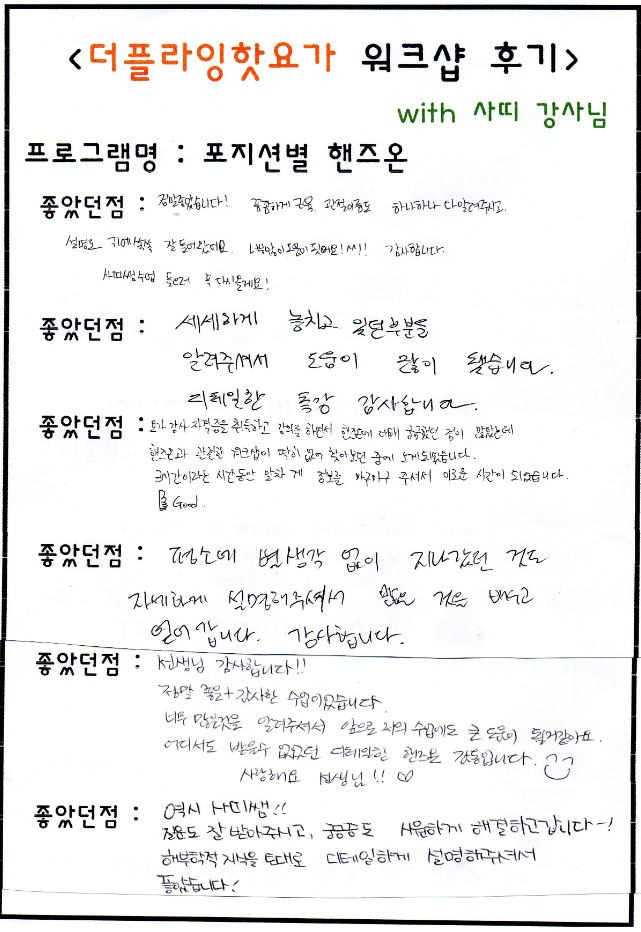 <더플라잉핫요가 워크샵 후기>
with 사띠 강사님
프로그램명 : 포지션별 핸즈온
좋았던점 : 정말좋았습니다! 꼼꼼하게 근육, 관절이름도 하나하나 다알려주시고,
설명도 귀에쏙쏙 잘 들어왔어요. 너무많이도움이 됫어요!^^!! 감사합니다.
사띠쌤수업 들으러 또 다시올게요!
좋았던점 : 세세하게 놓치고 있던부분을
알려주셔서 도움이 많이 됐습니다.
디테일한 특강 감사합니다.
좋았던점 : 요가 강사 자격증을 취득하고 강의를 하면서 핸즈온에 대해 궁금했던 점이 많았는데
핸즈온과 관련한 워크샵이 딱히 없어 찾아보던 중에 오게되었습니다.
3시간이라는 시간동안 알차게 정보를 마구마구 주셔서 이로운 시간이 되었습니다.
Good.
좋았던점 : 평소에 별생각 없이 지나갔던 것도
자세하게 설명해주셔서 많은 것을 배우고
얻어 갑니다. 감사합니다.
좋았던점 : 선생님 감사합니다!!
정말 좋은+감사한 수업이었습니다.
너무 많은것을 알려주셔서 앞으로 저의 수업에도 큰 도움이 될거같아요.
어디서도 받을수 없었던 디테일한 핸즈온 감동입니다.
사랑해요 선생님!! ♡
좋았던점 : 역시 사띠쌤!!
질문도 잘 받아주시고, 궁금증도 시원하게 해결하고갑니다~!
해부학적 지식을 토대로 디테일하게 설명해주셔서
좋았습니다!